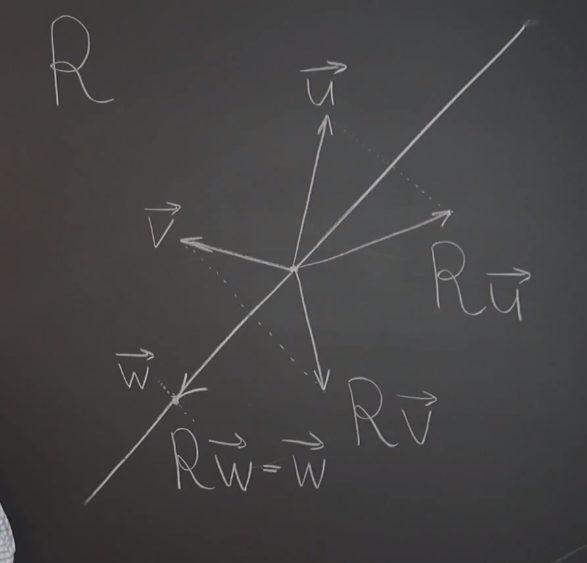 R
u⃗
v⃗
Ru⃗
w⃗
Rv⃗
Rw⃗ = w⃗